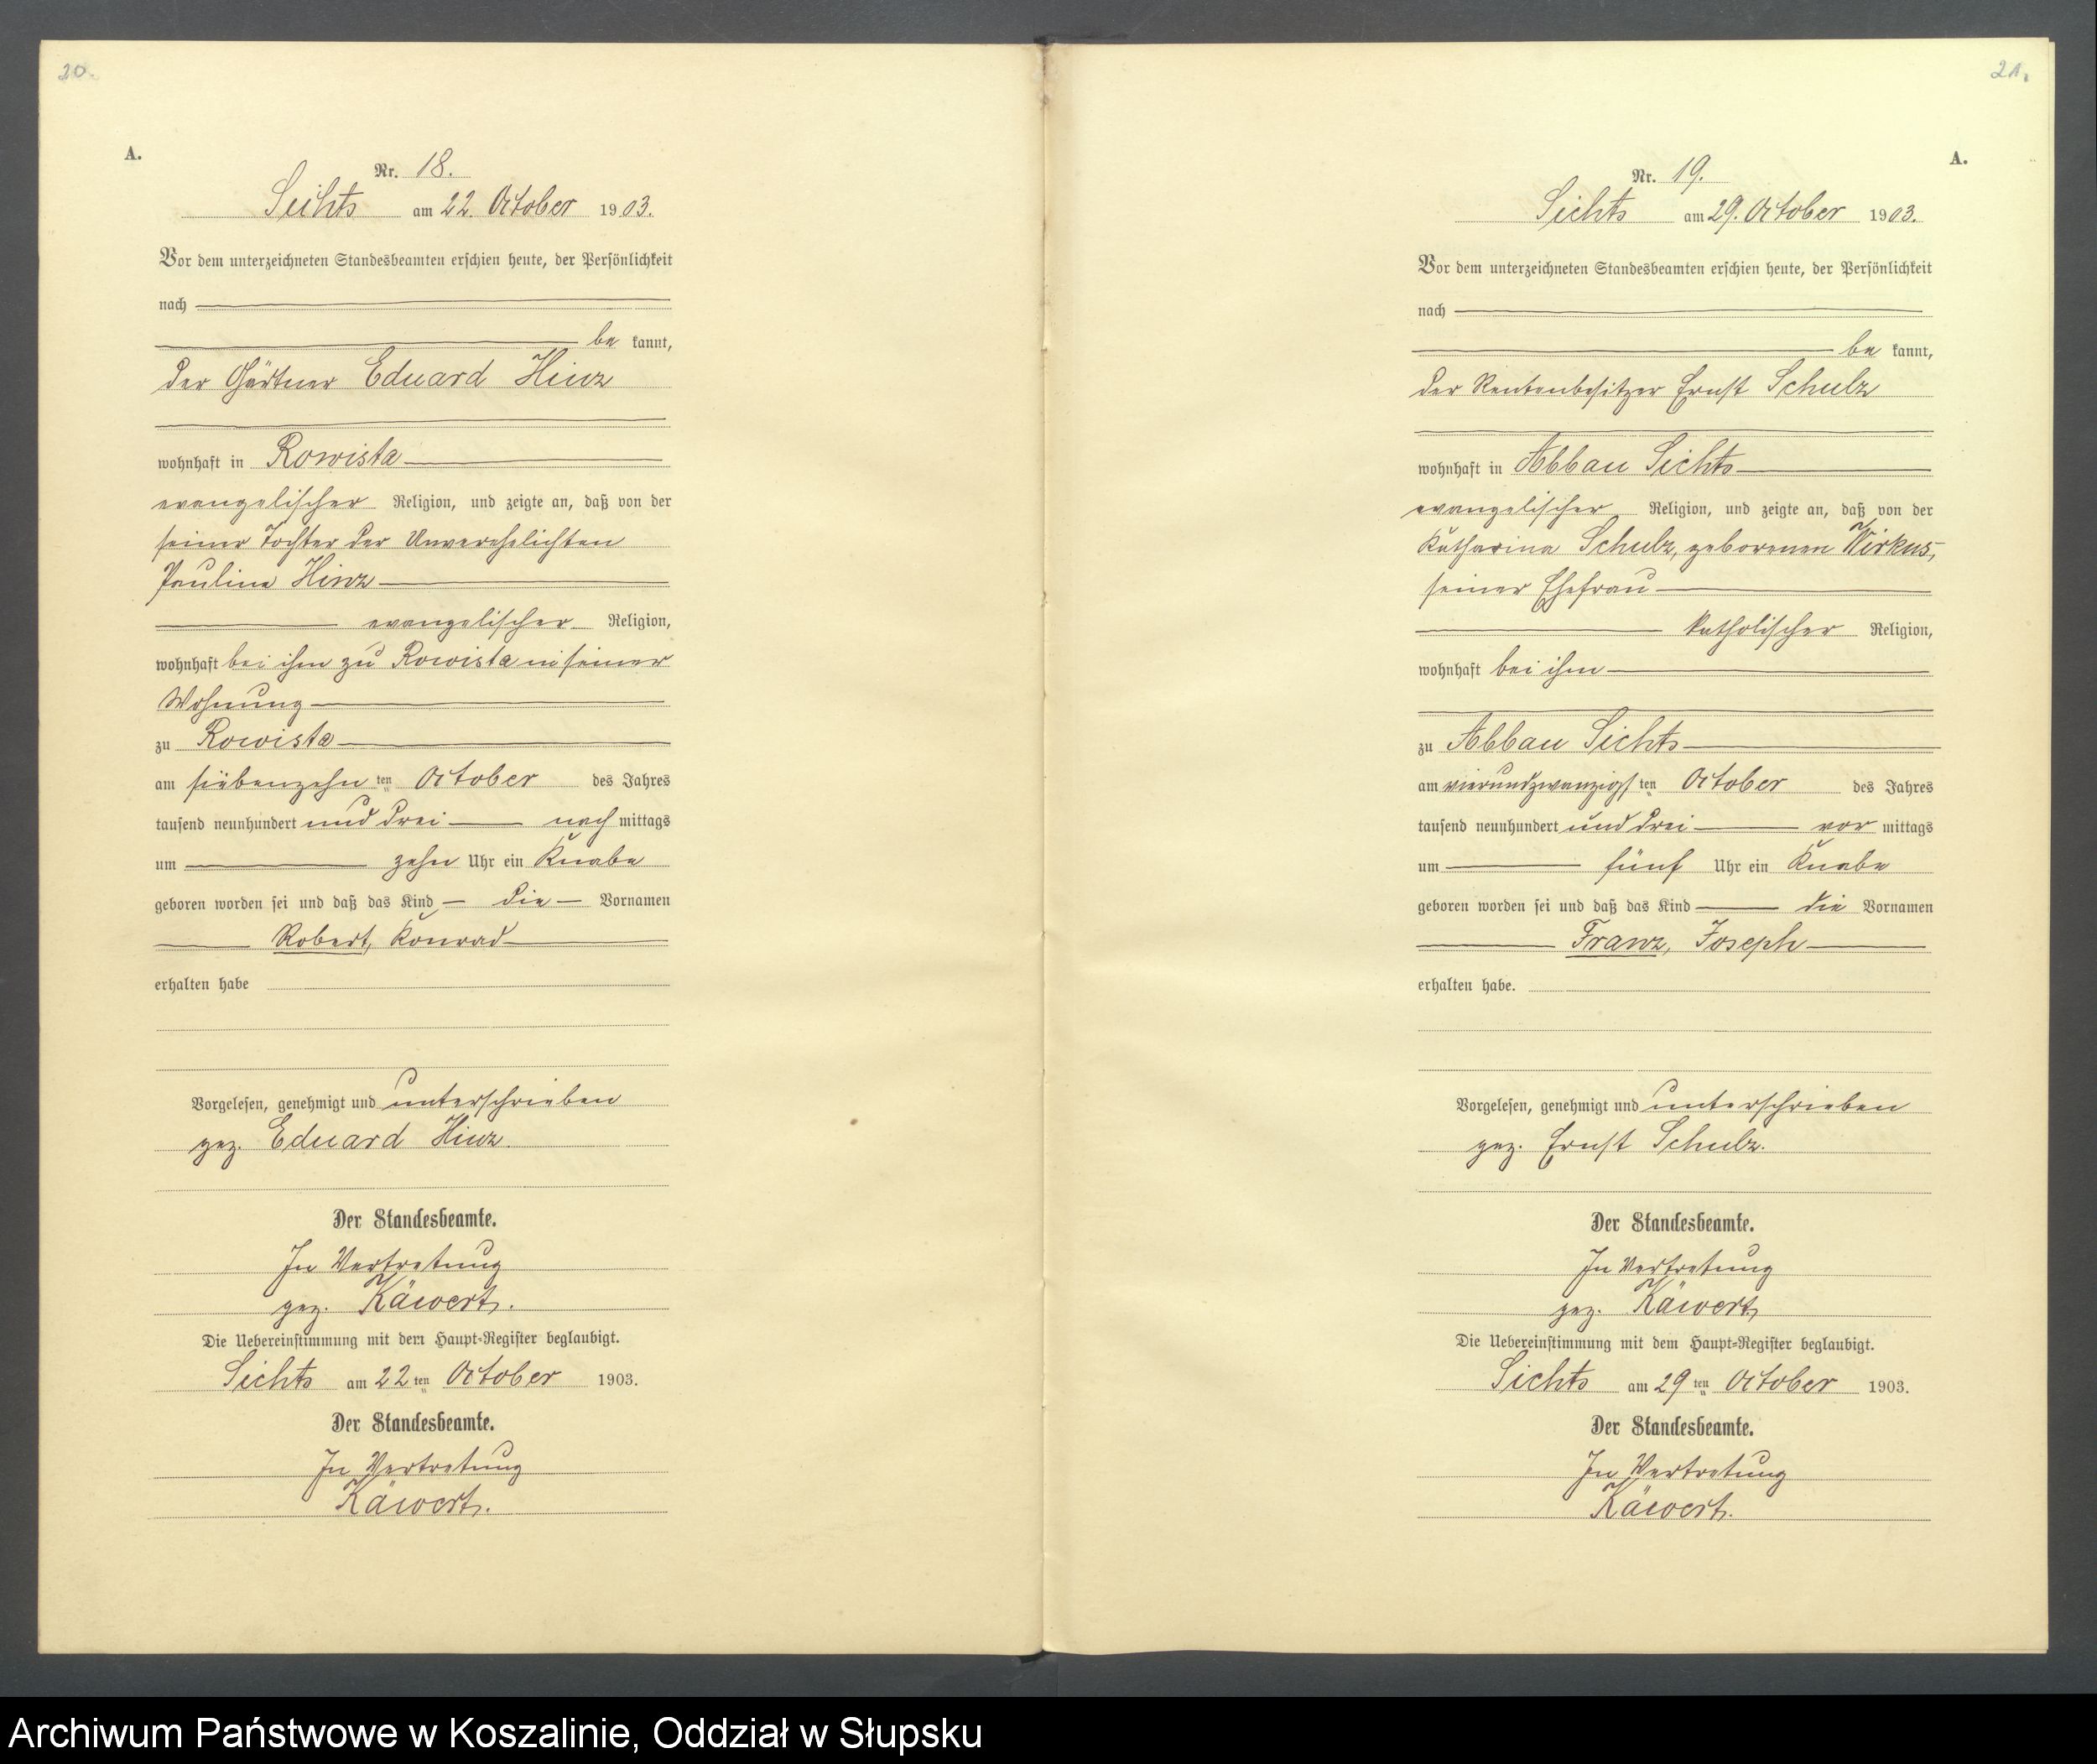 20.
A.
Nr. 18.
Sichts am 22. October 1903.
Vor dem unterzeichneten Standesbeamten erschien heute, der Persönlichkeit
nach
be kannt,
der Gärtner Eduard Hinz
wohnhaft in Rowista
evangelischer Religion, und zeigte an, daß von der
seiner Tochter der Unverehelichten
Pauline Hinz
evangelischer Religion,
wohnhaft bei ihm zu Rowista in seiner
Wohnung
zu Rowista
am siebenzehn ten October des Jahres
tausend neunhundert und drei nach mittags
um zehn Uhr ein Knabe
geboren worden sei und daß das Kind die Vornamen
Robert, Konrad
erhalten habe
Vorgelesen, genehmigt und unterschrieben
gez. Eduard Hinz.
Der Standesbeamte.
In Vertretung
gez. Käwert.
Die Uebereinstimmung mit dem Haupt-Register beglaubigt.
Sichts am 22 ten October 1903.
Der Standesbeamte.
In Vertretung
Käwert.
21.
A.
Nr. 19.
Sichts am 29. October 1903.
Vor dem unterzeichneten Standesbeamten erschien heute, der Persönlichkeit
nach
be kannt,
der Rentenbesitzer Ernst Schulz
wohnhaft in Abbau Sichts
evangelischer Religion, und zeigte an, daß von der
Katharina Schulz, geborenen Wirkus,
seiner Ehefrau
katholischer Religion,
wohnhaft bei ihm
zu Abbau Sichts
am vierundzwanzigs ten October des Jahres
tausend neunhundert und drei vor mittags
um fünf Uhr ein Knabe
geboren worden sei und daß das Kind die Vornamen
Franz, Joseph
erhalten habe.
Vorgelesen, genehmigt und unterschrieben
gez. Ernst Schulz.
Der Standesbeamte.
In Vertretung
gez. Käwert
Die Uebereinstimmung mit dem Haupt-Register beglaubigt.
Sichts am 29 ten October 1903.
Der Standesbeamte.
In Vertretung
Käwert.
Archiwum Państwowe w Koszalinie, Oddział w Słupsku